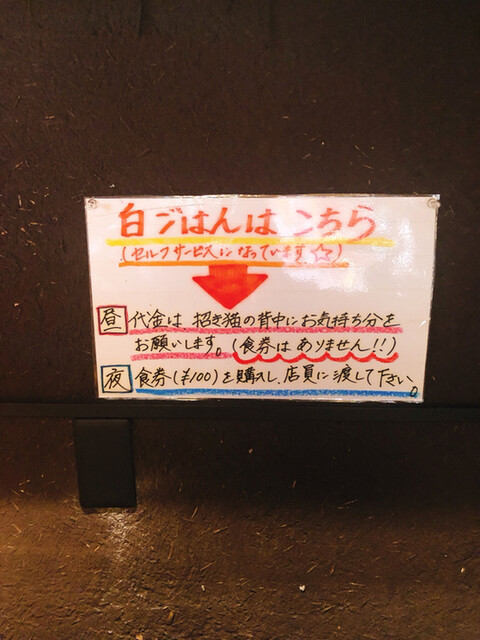 白ごはんはこちら
(セルフサービスになっています☆)
昼 代金は 招き猫の背中にお気持ち分を
お願いします。(食券はありません!!)
夜 食券(¥100)を購入し、店員に渡して下さい。